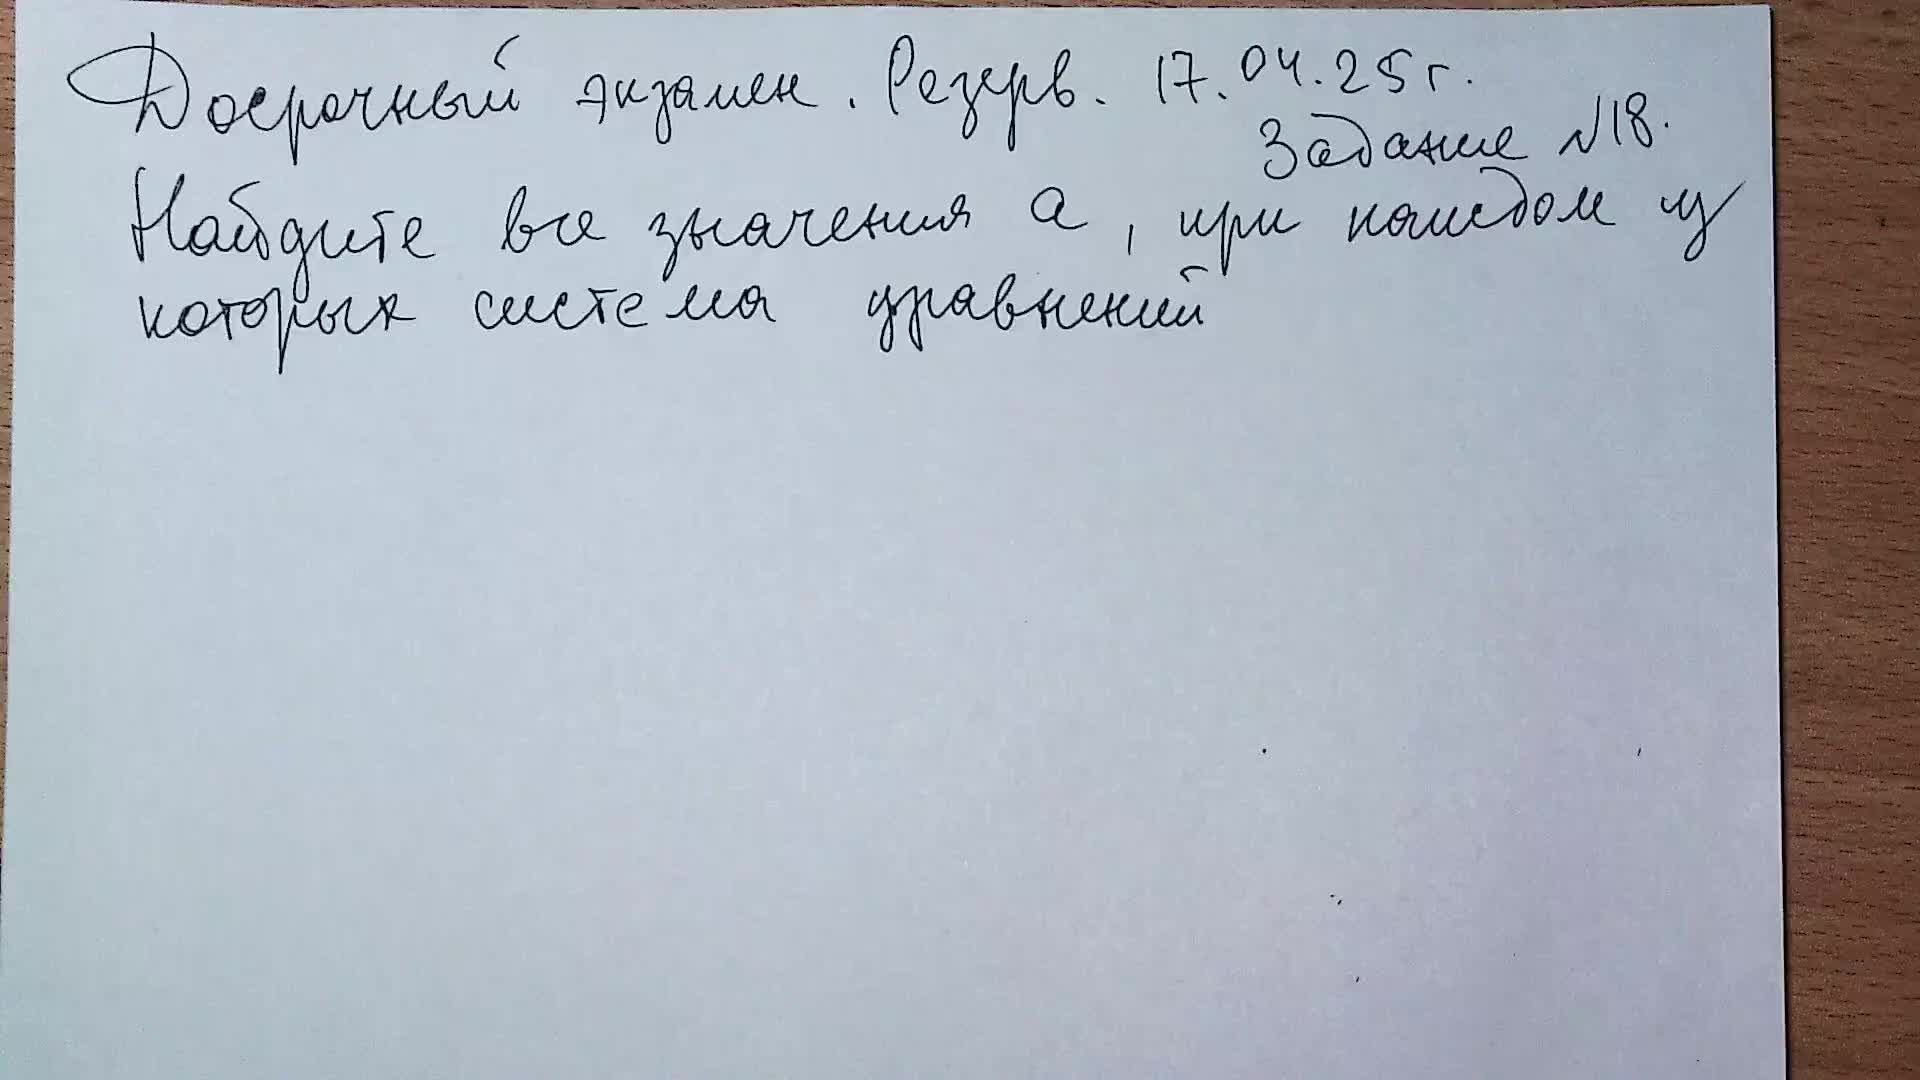 Досрочный экзамен. Резерв. 17.04.25г.
Задание №18.
Найдите все значения a, при каждом из
которых система уравнений